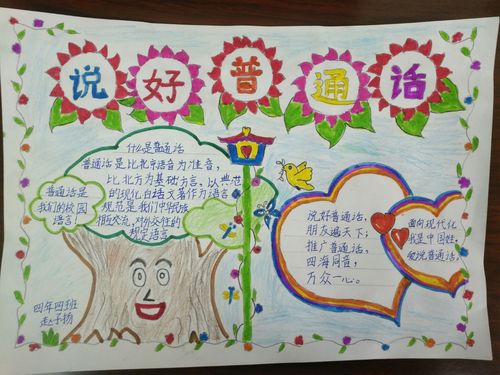 说好普通话
什么是普通话
普通话是比北京语音为准音,
比北方为基础方言、以典范
的现代白话文著作为语言
规范是我们中华民族
相互交流,对外公往的
规定语言
普通话是
我们的校园
语言
说好普通话,
朋友遍天下;
推广普通话,
四海同音,
万众一心。
面向现代化
我是中国娃,
爱说普通话,
四年四班
赵子扬